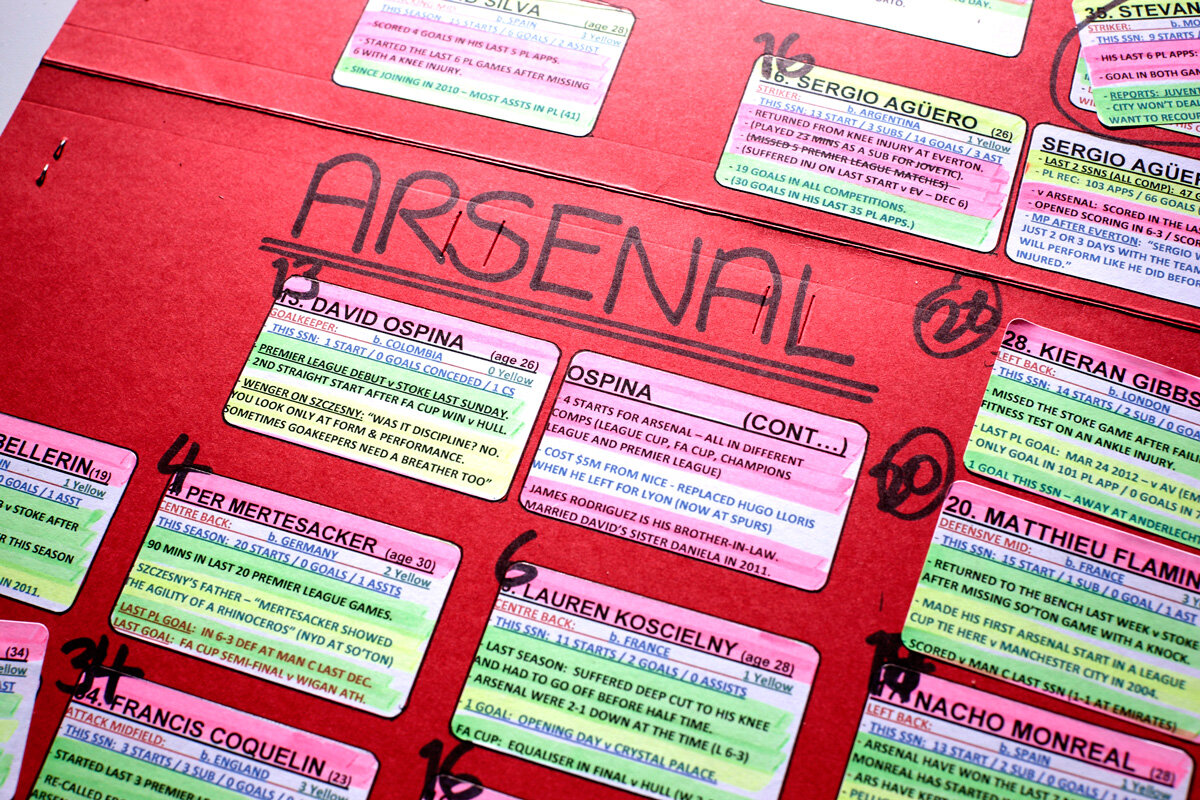 D SILVA (age 28)
b. SPAIN 3 Yellow
THIS SEASON: 15 STARTS / 6 GOALS / 2 ASSIST
- SCORED 4 GOALS IN HIS LAST 5 PL APPS.
- STARTED THE LAST 6 PL GAMES AFTER MISSING
6 WITH A KNEE INJURY.
- SINCE JOINING IN 2010 – MOST ASSTS IN PL (41)
16
16. SERGIO AGÜERO (26)
STRIKER: b. ARGENTINA 1 Yellow
THIS SSN: 13 START / 3 SUBS / 14 GOALS / 3 AST
- RETURNED FROM KNEE INJURY AT EVERTON.
- (PLAYED 23 MINS AS A SUB FOR JOVETIC).
- (MISSED 5 PREMIER LEAGUE MATCHES)
- (SUFFERED INJ ON LAST START v EV – DEC 6)
- 19 GOALS IN ALL COMPETITIONS.
- (30 GOALS IN HIS LAST 35 PL APPS.)
35. STEVAN
STRIKER: b. MO
- THIS SSN: 9 STARTS /
- HIS LAST 6 PL APPS:
- GOAL IN BOTH GAM
- REPORTS: JUVENT
- CITY WON'T DEA
WANT TO RECOU
SERGIO AGÜER
- LAST 2 SSNS (ALL COMP): 47 G
- PL REC: 103 APPS / 66 GOALS (
- v ARSENAL: SCORED IN THE LAS
- OPENED SCORING IN 6-3 / SCOR
- MP AFTER EVERTON: "SERGIO W
JUST 2 OR 3 DAYS WITH THE TEAM
WILL PERFORM LIKE HE DID BEFOR
INJURED."
ARSENAL
13
13. DAVID OSPINA (age 26)
GOALKEEPER: b. COLOMBIA 0 Yellow
THIS SSN: 1 START / 0 GOALS CONCEDED / 1 CS
- PREMIER LEAGUE DEBUT v STOKE LAST SUNDAY.
2ND STRAIGHT START AFTER FA CUP WIN v HULL.
- WENGER ON SZCZESNY: "WAS IT DISCIPLINE? NO.
YOU LOOK ONLY AT FORM & PERFORMANCE.
SOMETIMES GOAKEEPERS NEED A BREATHER TOO"
OSPINA (CONT...)
- 4 STARTS FOR ARSENAL – ALL IN DIFFERENT
COMPS (LEAGUE CUP, FA CUP, CHAMPIONS
LEAGUE AND PREMIER LEAGUE)
- COST $5M FROM NICE - REPLACED HUGO LLORIS
WHEN HE LEFT FOR LYON (NOW AT SPURS)
JAMES RODRIGUEZ IS HIS BROTHER-IN-LAW.
MARRIED DAVID'S SISTER DANIELA IN 2011.
28
28. KIERAN GIBBS
LEFT BACK: b. LONDON
- THIS SSN: 14 STARTS / 2 SUB / 0
- MISSED THE STOKE GAME AFTER FAILI
FITNESS TEST ON AN ANKLE INJURY.
- LAST PL GOAL: MAR 24 2012 – v AV (EM
- ONLY GOAL IN 101 PL APP / 0 GOALS IN
1 GOAL THIS SSN – AWAY AT ANDERLECHT
BELLERIN (19)
1 Yellow
/ 0 GOALS / 1 ASST
v STOKE AFTER
R THIS SEASON
IN 2011.
4
4. PER MERTESACKER (age 30)
CENTRE BACK: b. GERMANY 2 Yellow
THIS SEASON: 20 STARTS / 0 GOALS / 1 ASSTS
90 MINS IN LAST 20 PREMIER LEAGUE GAMES.
SZCZESNY'S FATHER – "MERTESACKER SHOWED
THE AGILITY OF A RHINOCEROS" (NYD AT SO'TON)
LAST PL GOAL: IN 6-3 DEF AT MAN C LAST DEC.
LAST GOAL: FA CUP SEMI-FINAL v WIGAN ATH.
6
6. LAUREN KOSCIELNY (age 28)
CENTRE BACK: b. FRANCE 1 Yellow
THIS SSN: 11 STARTS / 2 GOALS / 0 ASSISTS
LAST SEASON: SUFFERED DEEP CUT TO HIS KNEE
AND HAD TO GO OFF BEFORE HALF TIME.
- ARSENAL WERE 2-1 DOWN AT THE TIME (L 6-3)
1 GOAL: OPENING DAY v CRYSTAL PALACE.
FA CUP: EQUALISER IN FINAL v HULL (W 3
20
20. MATTHIEU FLAMIN
DEFENSIVE MID: b. FRANCE
- THIS SSN: 15 START / 1 SUB / 1 GOAL
- RETURNED TO THE BENCH LAST WEEK v STOKE
AFTER MISSING SO'TON GAME WITH A KNOCK.
- MADE HIS FIRST ARSENAL START IN A LEAGUE
CUP TIE HERE v MANCHESTER CITY IN 2004.
SCORED v MAN C LAST SSN (1-1 AT EMIRATES)
(34)
34
34. FRANCIS COQUELIN (23)
ATTACK MIDFIELD: b. ENGLAND 3 Yellow
THIS SSN: 3 STARTS / 3 SUB / 0 GOALS /
STARTED LAST 3 PREMIER
RE-CALLED
16
NACHO MONREAL (28)
LEFT BACK: b. SPAIN 1 Yellow
THIS SSN: 13 START / 2 SUB / 0 GOALS
- ARSENAL HAVE WON THE LAST
MONREAL HAS STARTED
- ARS HAVE KEPT